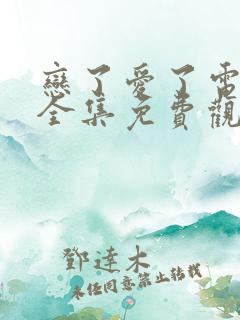 戀了愛了電
全集免費觀
鄧達木
未經同意禁止轉載